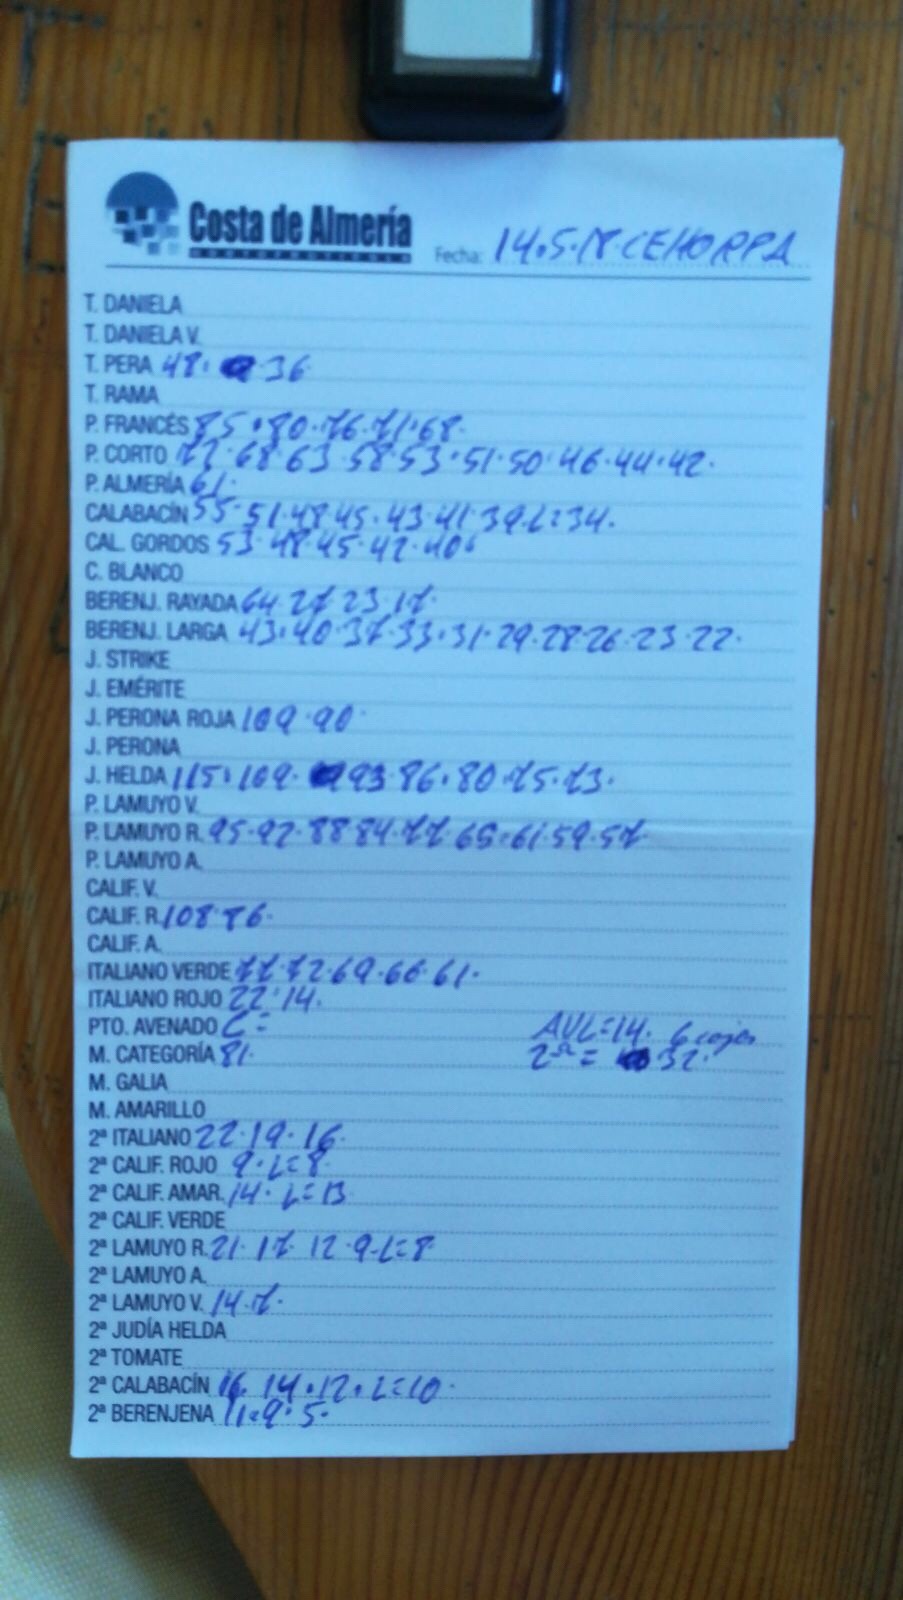 Costa de Almería
HORTOFRUTICOLA
Fecha: 14.5.18.CEHORPA
T. DANIELA
T. DANIELA V.
T. PERA 48. 36
T. RAMA
P. FRANCÉS 85.80.76.71.68.
P. CORTO 72.68.63.58.53.51.50.46.44.42.
P. ALMERÍA 61.
CALABACÍN 55.51.48.45.43.41.39.L=34.
CAL. GORDOS 53.48.45.42.40.
C. BLANCO
BERENJ. RAYADA 64.27.23.17.
BERENJ. LARGA 43.40.37.33.31.29.28.26.23.22.
J. STRIKE
J. EMÉRITE
J. PERONA ROJA 109.90.
J. PERONA
J. HELDA 115.109. 93.86.80.75.73.
P. LAMUYO V.
P. LAMUYO R. 95.92.88.84.77.65.61.59.57.
P. LAMUYO A.
CALIF. V.
CALIF. R. 108.86.
CALIF. A.
ITALIANO VERDE 77.72.69.66.61.
ITALIANO ROJO 22.14.
PTO. AVENADO C= AVL=14. 6 cajas
M. CATEGORÍA 81. 2ª= 32.
M. GALIA
M. AMARILLO
2ª ITALIANO 22.19.16.
2ª CALIF. ROJO 9.L=8.
2ª CALIF. AMAR. 14.L=13
2ª CALIF. VERDE
2ª LAMUYO R. 21.17.12.9.L=8.
2ª LAMUYO A.
2ª LAMUYO V. 14.7.
2ª JUDÍA HELDA
2ª TOMATE
2ª CALABACÍN 16.14.12.L=10.
2ª BERENJENA 11.9.5.